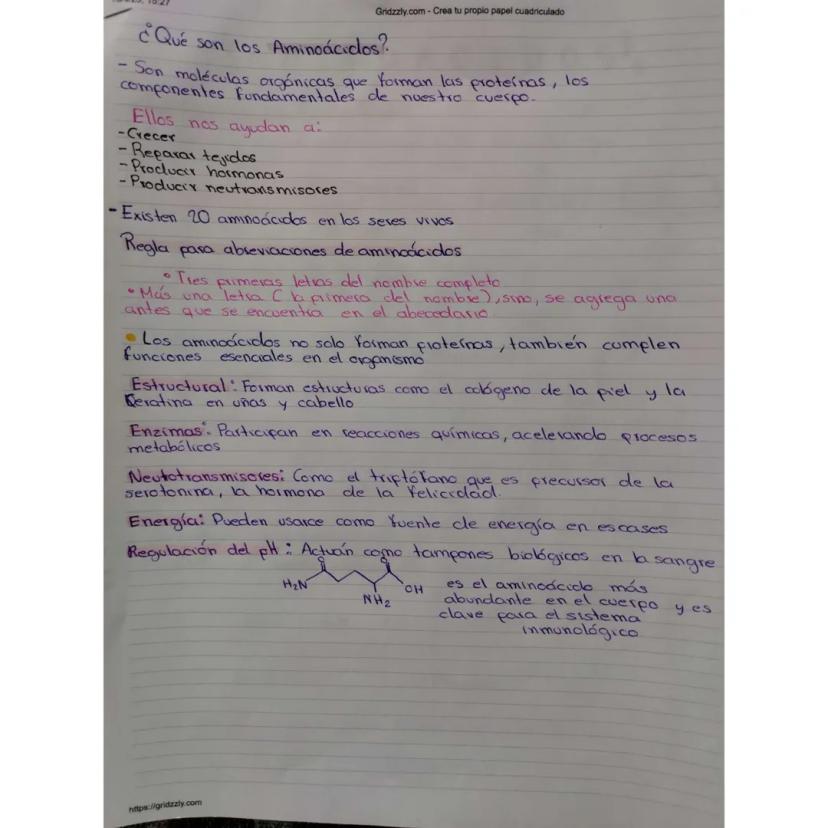 Gridzzly.com - Crea tu propio papel cuadriculado
¿Qué son los Aminoácidos?
- Son moléculas orgánicas que forman las proteínas, los
componentes fundamentales de nuestro cuerpo.
Ellos nos ayudan a:
- Crecer
- Reparar tejidos
- Producir hormonas
- Producir neutransmisores
- Existen 20 aminoácidos en los seres vivos
Regla para abreviaciones de aminoácidos
• Tres primeras letras del nombre completo
• Más una letra (la primera del nombre), sino, se agrega una
antes que se encuentra en el abecedario
• Los aminoácidos no solo forman proteínas, también cumplen
funciones esenciales en el organismo
Estructural: Forman estructuras como el colágeno de la piel y la
Keratina en uñas y cabello
Enzimas: Participan en reacciones químicas, acelerando procesos
metabólicos
Neutotransmisores: Como el triptófano que es precursor de la
serotonina, la hormona de la felicidad.
Energía: Pueden usarce como fuente de energía en escases
Regulación del pH: Actuán como tampones biológicos en la sangre
O O
H₂N OH
NH₂
es el aminoácido más
abundante en el cuerpo y es
clave para el sistema
inmunológico
https://gridzzly.com